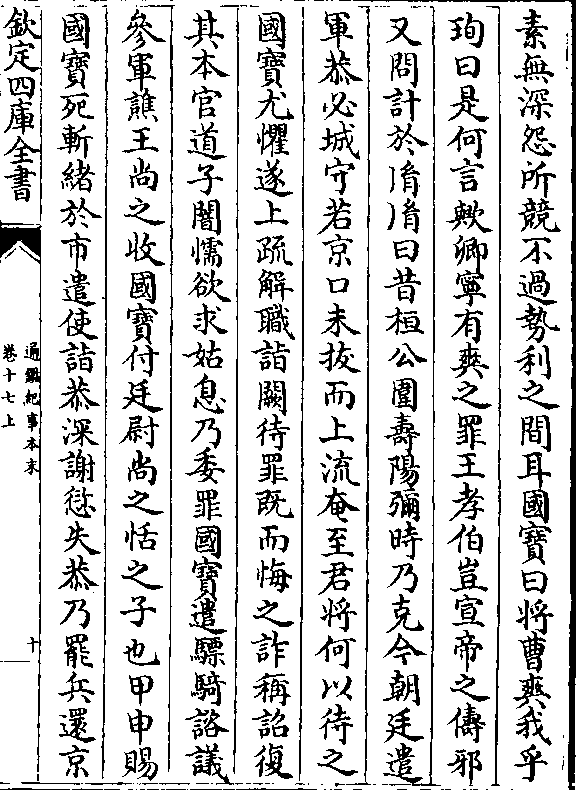 素無深怨所競不過勢利之間耳國寶曰將曹爽我乎
珣曰是何言歟卿寧有爽之罪王孝伯豈宣帝之儔邪
又問計於胤胤曰昔桓公圍壽陽彌時乃克今朝廷遣
軍恭必城守若京口未拔而上流奄至君將何以待之
國寶尤懼遂上疏解職詣闕待罪既而悔之詐稱詔復
其本官道子闇懦欲求姑息乃委罪國寶遣驃騎諮議
參軍譙王尚之收國寶付廷尉尚之恬之子也甲申賜
國寶死斬緒於市遣使詣恭深謝愆失恭乃罷兵還京
欽定四庫全書
通鑑紀事本末
卷十七上
十